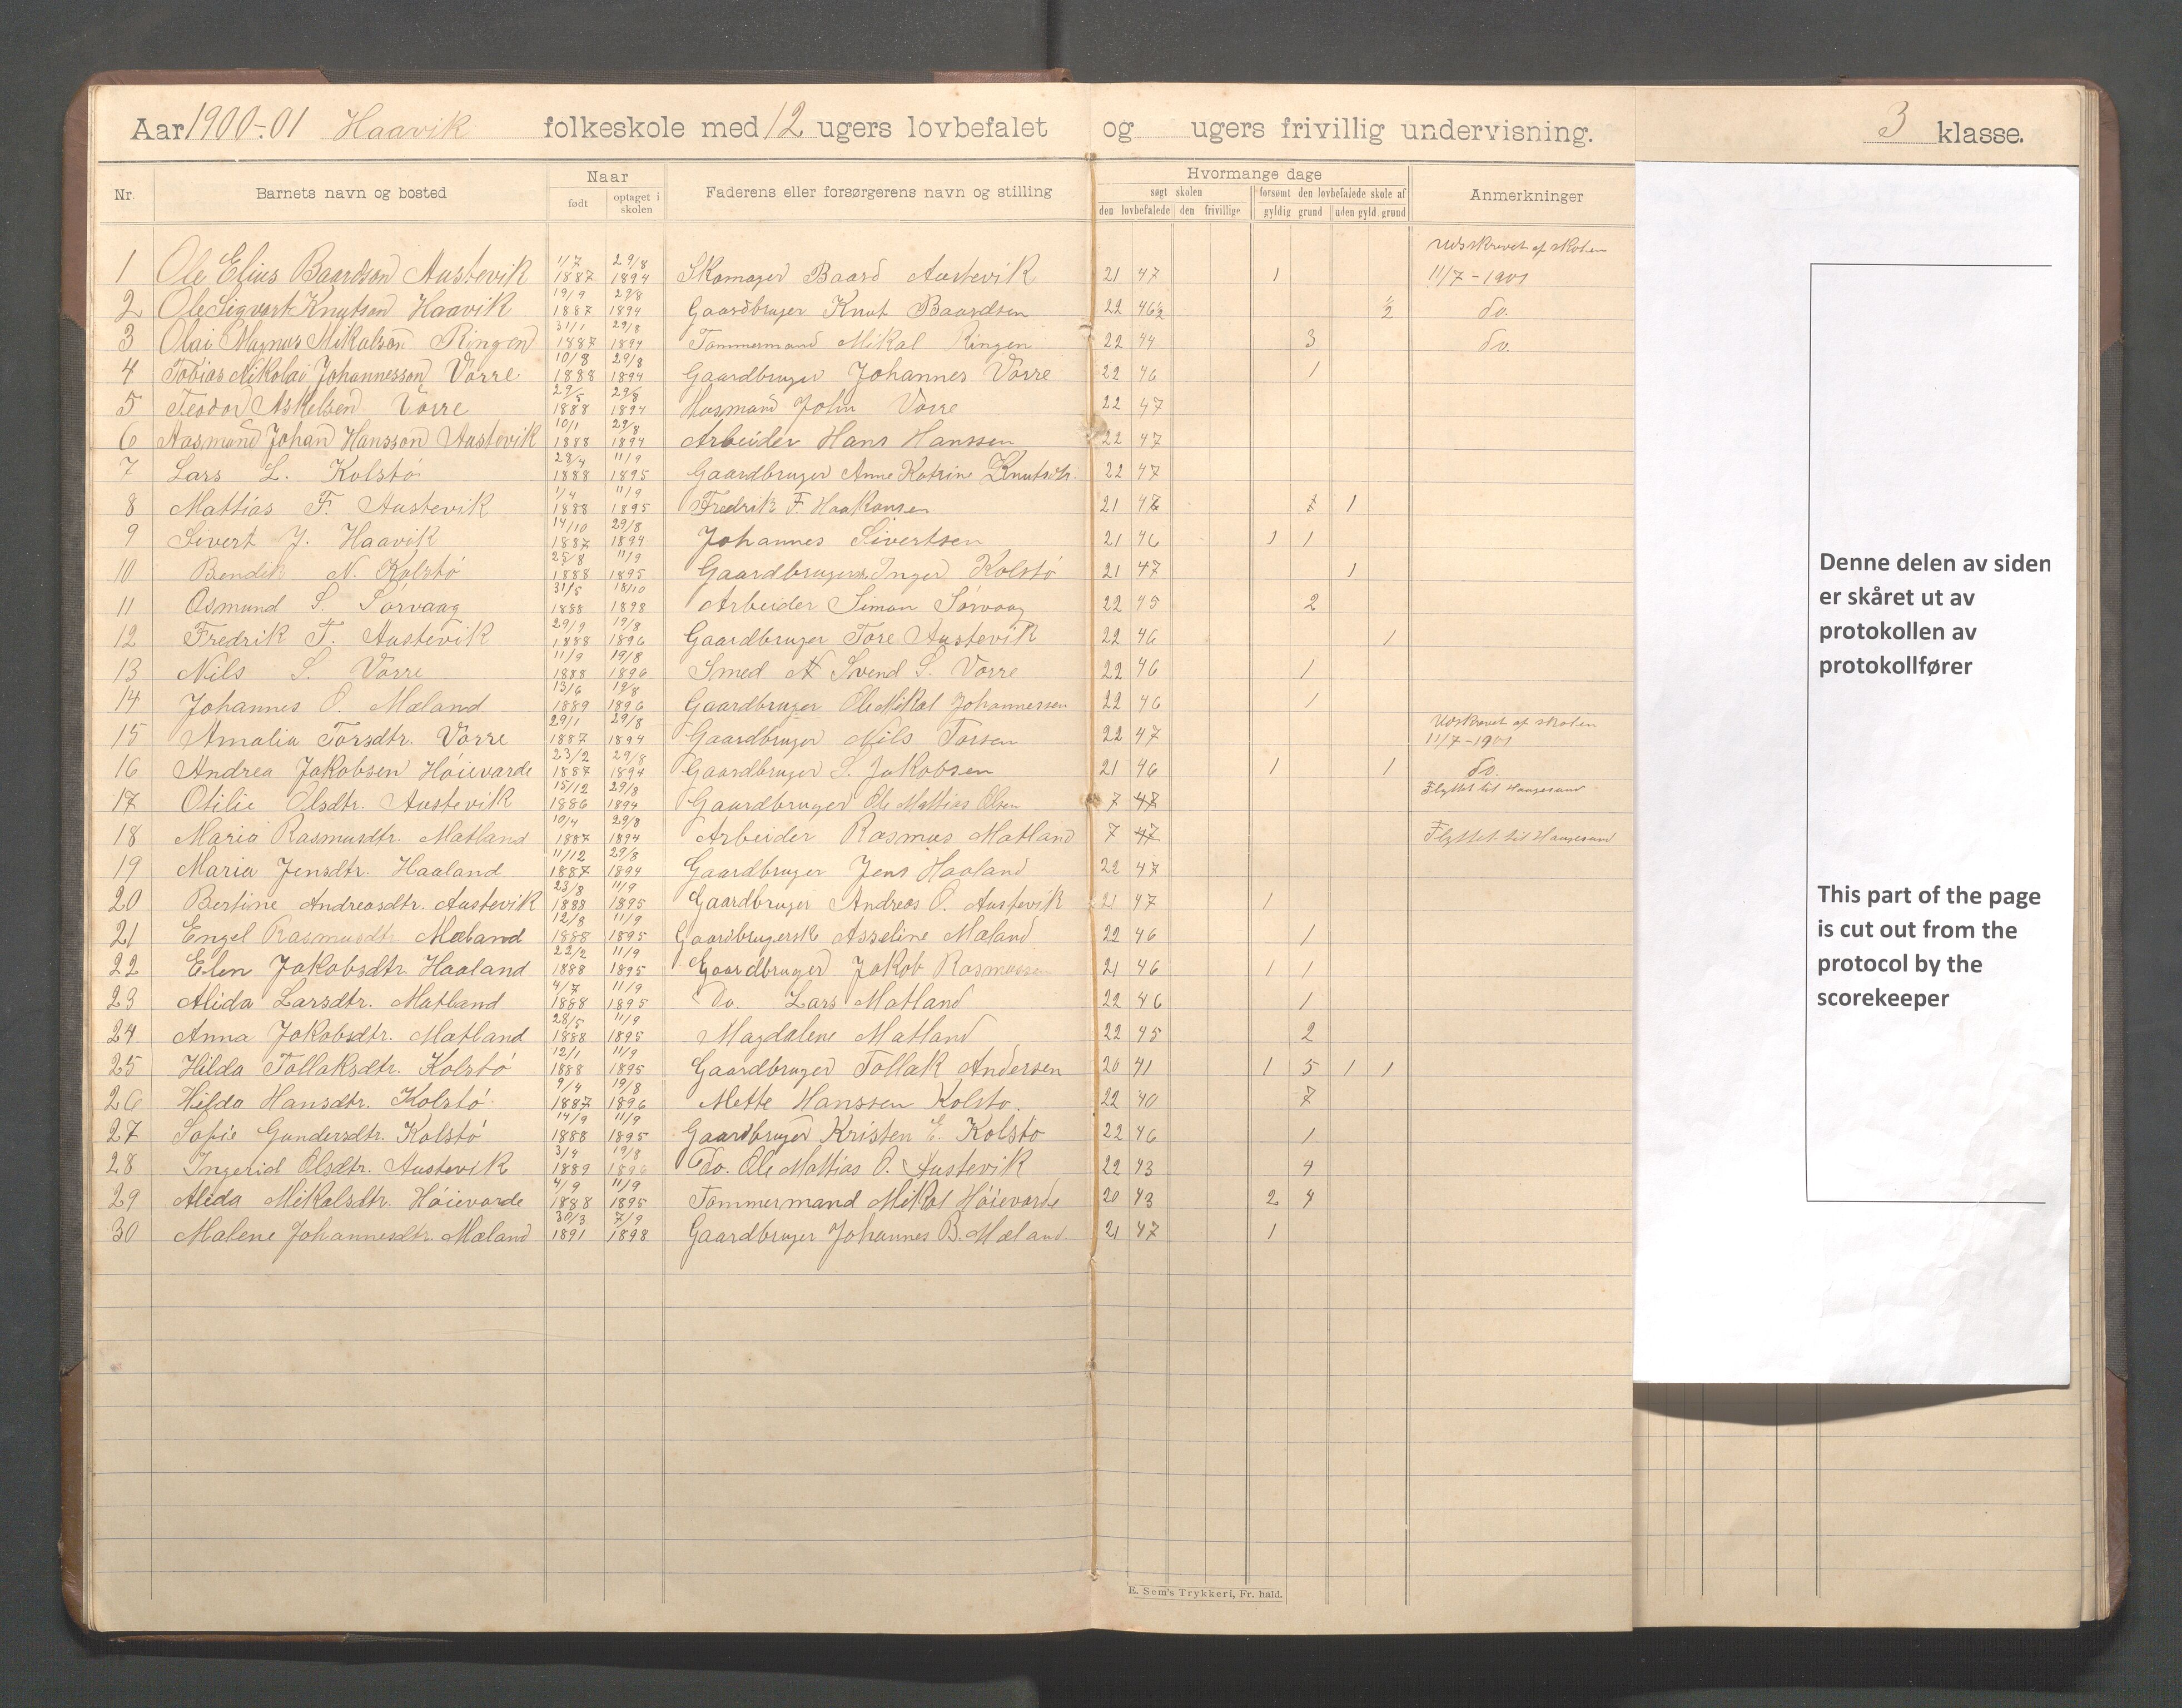 Aar 1900-01 Haavik folkeskole med 12 ugers lovbefalet og ugers frivillig undervisning. 3 klasse.
Nr. Barnets navn og bosted Naar født optaget i skolen Faderens eller forsørgerens navn og stilling Hvormange dage søgt skolen den lovbefalede den frivillige forsømt den lovbefalede skole af gyldig grund uden gyld. grund Anmerkninger
Udskrevet af skolen
1 Ole Elius Baardson Austevik 1/7 1887 29/8 1894 Skomager Baard Austevik 21 47 1 11/7-1901
2 Ole Sigvart Knutson Haavik 19/9 1887 29/8 1894 Gaardbruger Knut Baardsen 22 46½ ½ do.
3 Olai Magnus Mikalson Ringen 31/1 1887 29/8 1894 Tømmermand Mikal Ringen 22 44 3 do.
4 Tobias Nikolai Johannesson Vorre 10/8 1888 29/8 1894 Gaardbruger Johannes Vorre 22 46 1
5 Teodor Askelsen Vorre 29/5 1888 29/8 1894 Husmand John Vorre 22 47
6 Aasmund Johan Hansson Austevik 10/1 1888 29/8 1894 Arbeider Hans Hanssen 22 47
7 Lars L. Kolstø 28/4 1888 11/9 1895 Gaardbruger Anne Katrine Knutsdtr. 22 47
8 Mattias F. Austevik 1/4 1888 11/9 1895 Fredrik F. Haakonsen 21 47 1 1
9 Sivert J. Haavik 14/10 1887 29/8 1894 Johannes Sivertsen 21 46 1 1
10 Bendik N. Kolstø 25/8 1888 11/9 1895 Gaardbrugersk. Inger Kolstø 21 47 1
11 Osmund S. Sørvaag 31/5 1888 18/10 1898 Arbeider Simon Sørvaag 22 45 2
12 Fredrik T. Austevik 29/9 1888 19/8 1896 Gaardbruger Tore Austevik 22 46 1
13 Nils S. Vorre 11/9 1888 19/8 1896 Smed Svend S. Vorre 22 46 1
14 Johannes O. Mæland 13/6 1889 19/8 1896 Gaardbruger Ole Mikal Johannessen 22 46 1
Udskrevet af skolen
15 Amalia Torsdtr. Vorre 29/1 1887 29/8 1894 Gaardbruger Nils Torsen 22 47 11/7-1901
16 Andrea Jakobsen Høievarde 23/2 1887 29/8 1894 Gaardbruger S. Jakobsen 21 46 1 1 do.
17 Otilie Olsdtr. Austevik 15/12 1886 29/8 1894 Gaardbruger Ole Mattias Olsen 7 47 Flyttet til Haugesund
18 Maria Rasmusdtr. Matland 10/4 1887 29/8 1894 Arbeider Rasmus Matland 7 47 Flyttet til Haugesund
19 Maria Jensdtr. Haaland 11/12 1887 29/8 1894 Gaardbruger Jens Haaland 22 47
20 Bertine Andreasdtr. Austevik 23/8 1888 11/9 1895 Gaardbruger Andreas O. Austevik 21 47 1
21 Engel Rasmusdtr Mæland 12/8 1888 11/9 1895 Gaardbrugersk Asseline Mæland 22 46 1
22 Elen Jakobsdtr. Haaland 22/2 1888 11/9 1895 Gaardbruger Jakob Rasmussen 21 46 1 1
23 Alida Larsdtr. Matland 4/7 1888 11/9 1895 Do. Lars Matland 22 46 1
24 Anna Jakobsdtr. Matland 28/5 1888 11/9 1895 Magdalene Matland 22 45 2
25 Hilda Tollaksdtr. Kolstø 12/1 1888 11/9 1895 Gaardbruger Tollak Andersen 20 41 1 5 1 1
26 Hilda Hansdtr. Kolstø 9/4 1887 19/8 1896 Mette Hanssen Kolstø. 22 40 7
27 Sofie Gundersdtr. Kolstø 14/9 1888 11/9 1895 Gaardbruger Kristen E. Kolstø 22 46 1
28 Ingerid Olsdtr. Austevik 3/4 1889 19/8 1896 Do. Ole Mattias O. Austevik 22 43 4
29 Alida Mikalsdtr. Høievarde 4/9 1888 11/9 1895 Tømmermand Mikal Høievarde 20 43 2 4
30 Malene Johannesdtr. Mæland 30/3 1891 7/9 1898 Gaardbruger Johannes B. Mæland 21 47 1
E. Sem's Trykkeri, Fr. hald.
Denne delen av siden
er skåret ut av
protokollen av
protokollfører
This part of the page
is cut out from the
protocol by the
scorekeeper